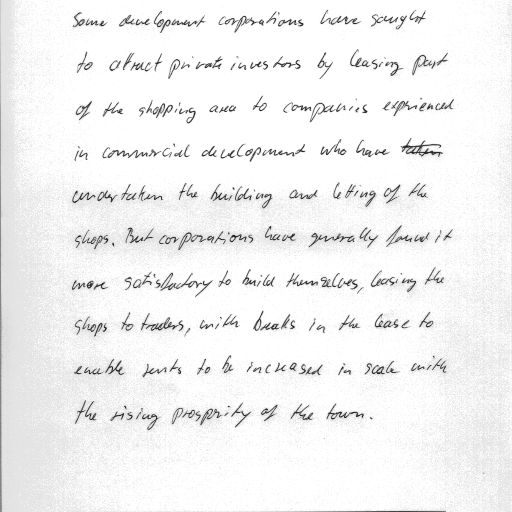 Some development corporations have sought
to attract private investors by leasing part
of the shopping area to companies exprienced
in commercial development who have taken
undertaken the building and letting of the
shops. But corporations have generally found it
more satisfactory to build themselves, leasing the
shops to traders, with breaks in the lease to
enable rents to be increased in scale with
the rising prosprity of the town.